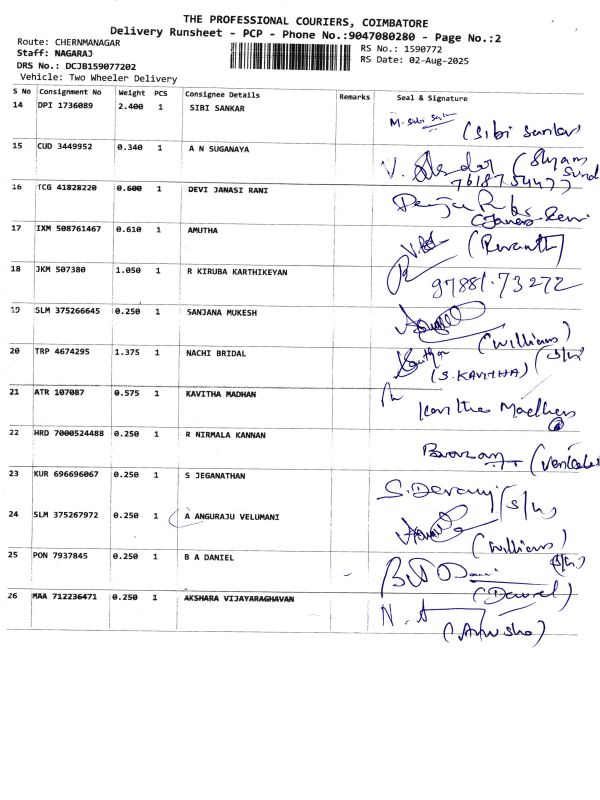 THE PROFESSIONAL COURIERS, COIMBATORE
Delivery Runsheet - PCP - Phone No.:9047080280 - Page No.:2
Route: CHERNMANAGAR
RS No.: 1590772
Staff: NAGARAJ
RS Date: 02-Aug-2025
DRS No.: DCJB159077202
Vehicle: Two Wheeler Delivery
S No Consignment No Weight PCS Consignee Details Remarks Seal & Signature
14 DPI 1736089 2.400 1 SIBI SANKAR
M. Sibi (Sibi Sankar
15 CUD 3449952 0.340 1 A N SUGANYA
V. (Shyam
16 TCG 41828220 0.600 1 DEVI JANASI RANI
17 IXM 508761467 0.610 1 AMUTHA
(Revanth)
18 JKM 507380 1.050 1 R KIRUBA KARTHIKEYAN
97881.73272
19 SLM 375266645 0.250 1 SANJANA MUKESH
(williams)
20 TRP 4674295 1.375 1 NACHI BRIDAL
(S.KAVITHA) (S/W)
21 ATR 107087 0.575 1 KAVITHA MADHAN
Kavitha Madhan
22 HRD 7000524488 0.250 1 R NIRMALA KANNAN
23 KUR 696696067 0.250 1 S JEGANATHAN
24 SLM 375267972 0.250 1 A ANGURAJU VELUMANI
(williams)
25 PON 7937845 0.250 1 B A DANIEL
(Daniel)
26 MAA 712236471 0.250 1 AKSHARA VIJAYARAGHAVAN
N. A
(Anusha)